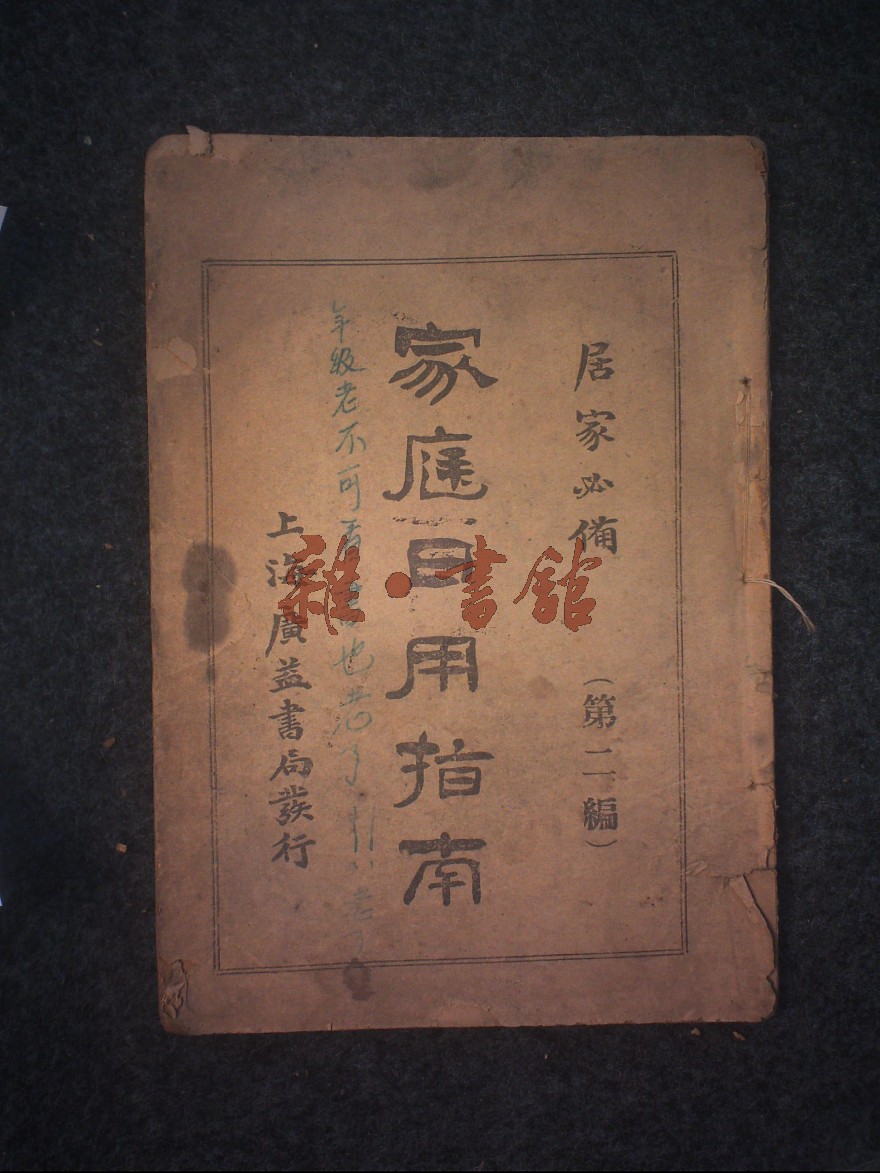 居家必備
（第二編）
家庭日用指南
年級老不可看書也老了
上海廣益書局發行
雜·書館